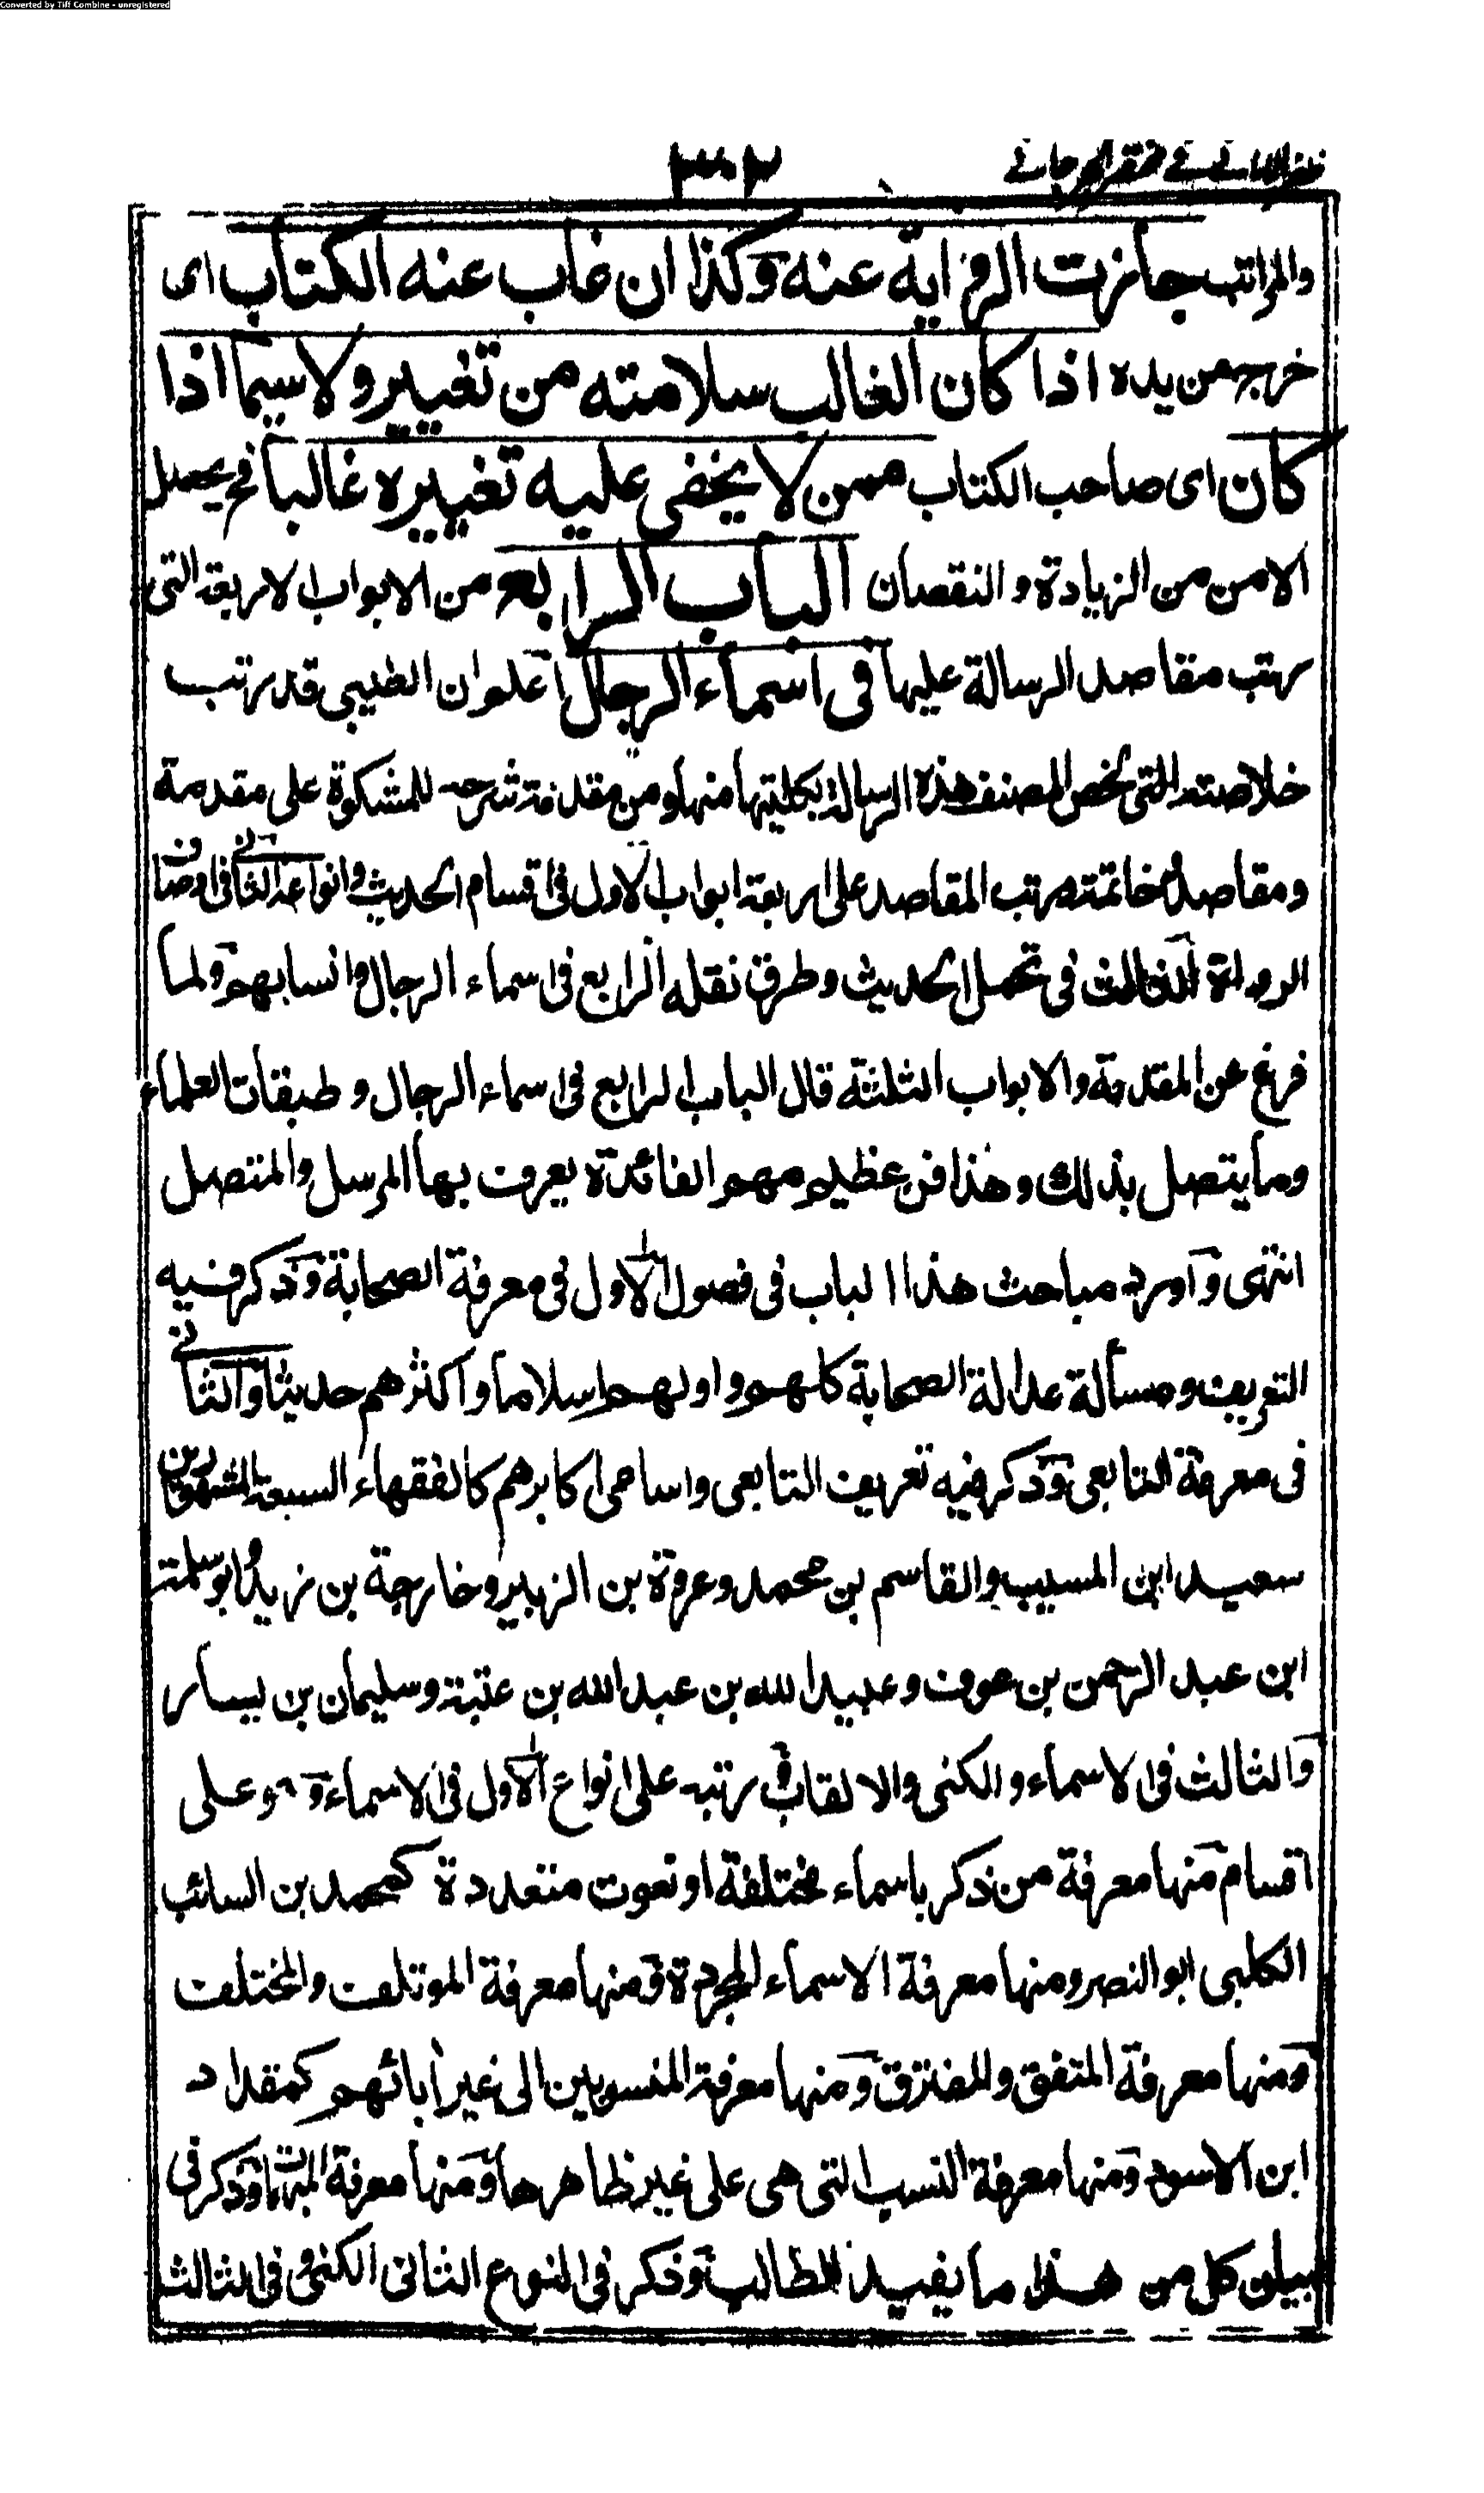 Converted by Tiff Combine - unregistered
ظفر الامانى فى مختصر الجرجانى
٣٠٢
والمراتب جازت الرواية عنه وكذا ان غاب عنه الكتاب اى
خرج من يده اذا كان الغالب سلامته من تغيير ولا سيما اذا
كان اى صاحب الكتاب ممن لا يخفى عليه تغييره غالبا فح يحصل
الامن من الزيادة والنقصان الباب الرابع من الابواب الاربعة التى
رتب مقاصد الرسالة عليها فى اسماء الرجال اعلم ان الطيبى قد رتب
خلاصته التى لخص المصنف هذه الرسالة بكليتها منها ومن مقدمة شرحه للمشكوة على مقدمة
ومقاصد وخاتمة ورتب المقاصد على اربعة ابواب الاول فى اقسام الحديث وانواعه الثانى فى اوصاف
الرواة الثالث فى تحمل الحديث وطرق نقله الرابع فى اسماء الرجال وانسابهم ولما
فرغ عن المقدمة والابواب الثلثة قال الباب الرابع فى اسماء الرجال وطبقات العلماء
وما يتصل بذلك وهذا فن عظيم مهم الفائدة يعرف بها المرسل والمتصل
انتهى واورد مباحث هذا الباب فى فصول الاول فى معرفة الصحابة وذكر فيه
التعريف ومسألة عدالة الصحابة كلهم واولهم اسلاما واكثرهم حديثا والثانى
فى معرفة التابعى وذكر فيه تعريف التابعى واسامى اكابرهم كالفقهاء السبعة المشهورين
سعيد ابن المسيب والقاسم بن محمد وعروة بن الزبير وخارجة بن زيد وابو سلمة
ابن عبد الرحمن بن عوف وعبيد الله بن عبد الله بن عتبة وسليمان بن يسار
والثالث فى الاسماء والكنى والالقاب ورتبه على انواع الاول فى الاسماء وهو على
اقسام منها معرفة من ذكر باسماء مختلفة او نعوت متعددة كمحمد بن السائب
الكلبى ابو النصر ومنها معرفة الاسماء المجردة ومنها معرفة الموتلف والمختلف
ومنها معرفة المتفق والمفترق ومنها معرفة المنسوبين الى غير أبائهم كمقداد
ابن الاسود ومنها معرفة النسب التى هى على غير ظاهرها ومنها معرفة المبهمات وذكر فى
بيان كل من هذا ما يفيد للطالب وذكر فى النوع الثانى الكنى وفى الثالث